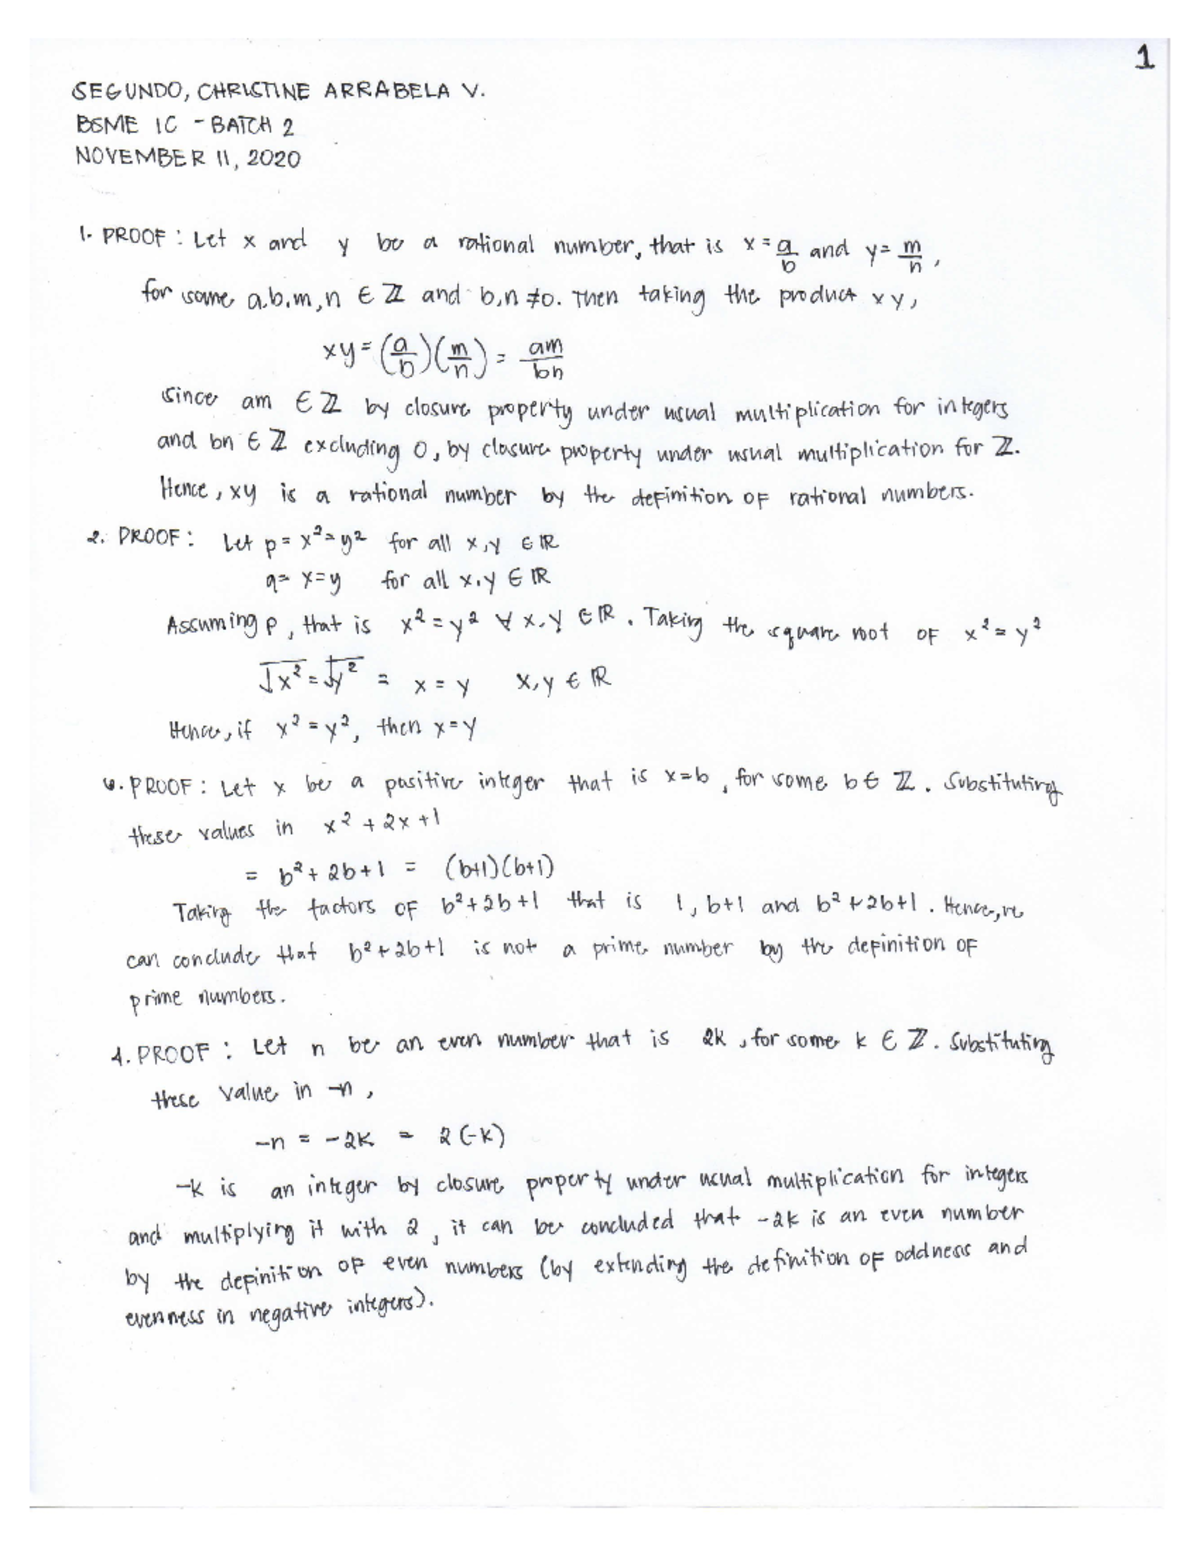 1
SEGUNDO, CHRISTINE ARRABELA V.
BSME 1C - BATCH 2
NOVEMBER 11, 2020
1. PROOF : Let x and y be a rational number, that is x = a/b and y = m/n,
for some a,b,m,n ∈ ℤ and b,n ≠ 0. Then taking the product xy,
xy = (a/b)(m/n) = am/bn
Since am ∈ ℤ by closure property under usual multiplication for integers
and bn ∈ ℤ excluding 0, by closure property under usual multiplication for ℤ.
Hence, xy is a rational number by the definition of rational numbers.
2. PROOF : Let p = x² = y² for all x,y ∈ ℝ
q = x = y for all x,y ∈ ℝ
Assuming p, that is x² = y² ∀ x,y ∈ ℝ. Taking the square root of x² = y²
√x² = √y² = x = y x,y ∈ ℝ
Hence, if x² = y², then x = y
PROOF : Let x be a positive integer that is x = b, for some b ∈ ℤ. Substituting
these values in x² + 2x + 1
= b² + 2b + 1 = (b+1)(b+1)
Taking the factors of b² + 2b + 1 that is 1, b+1 and b² + 2b + 1. Hence, we
can conclude that b² + 2b + 1 is not a prime number by the definition of
prime numbers.
4. PROOF : Let n be an even number that is 2k, for some k ∈ ℤ. Substituting
these value in -n,
-n = -2k = 2(-k)
-k is an integer by closure property under usual multiplication for integers
and multiplying it with 2, it can be concluded that -2k is an even number
by the definition of even numbers (by extending the definition of oddness and
evenness in negative integers).